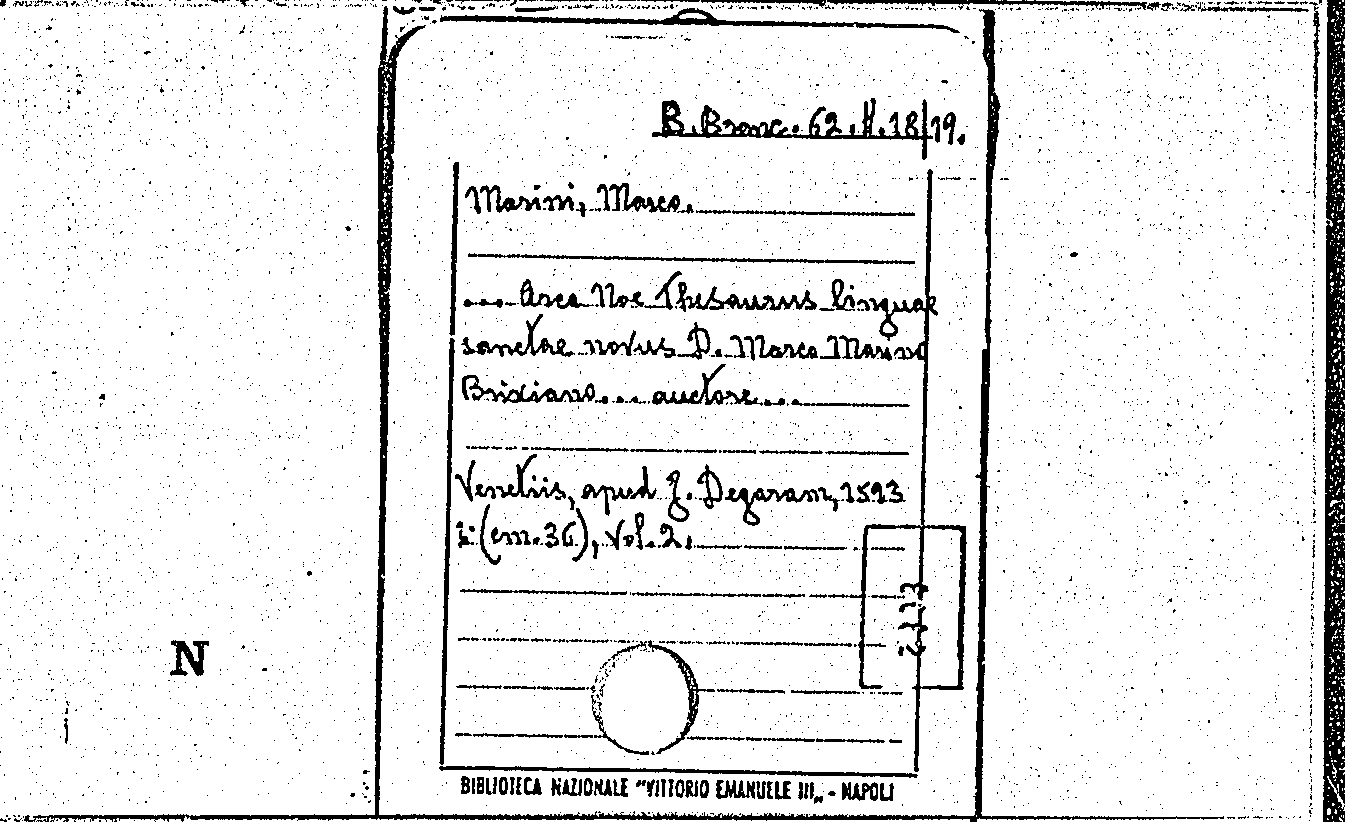 B. Branc. 62. H. 18/19.
Marini, Marco.
... Arca Noe Thesaurus linguae
sanctae novus D. Marco Marino
Brixiano... auctore...
Venetiis, apud J. Degaram, 1593
(cm. 36), Vol. 2.
N
BIBLIOTECA NAZIONALE "VITTORIO EMANUELE III„ - NAPOLI